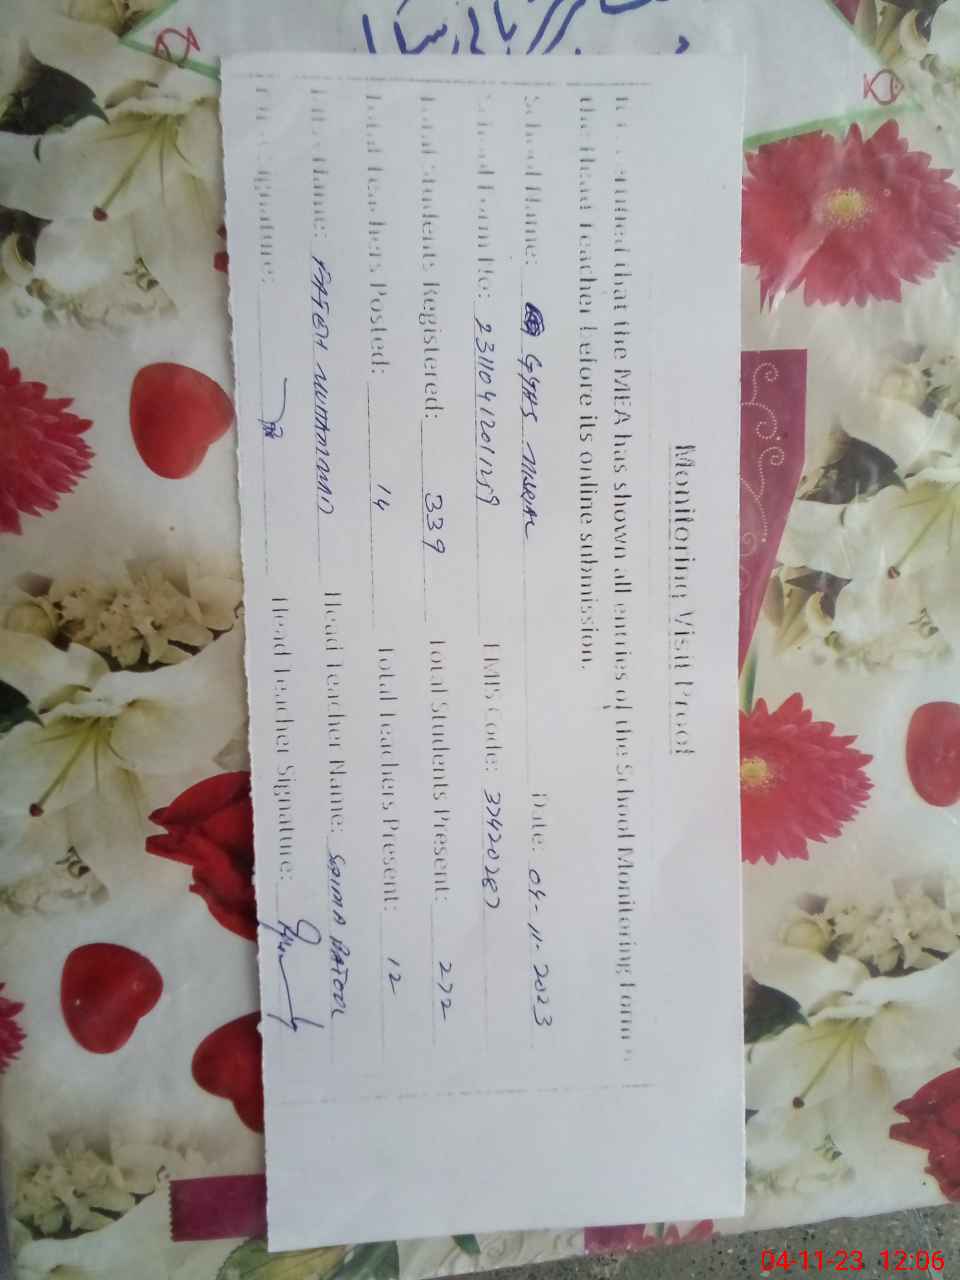 Monitoring Visit Proof
It is certified that the MEA has shown all entries of the School Monitoring Form to
the Head Teacher before its online submission.
School Name: GGHS Date: 04-11-2023
School Form No: 23110412011259 EMIS Code: 37420287
Total Students Registered: 339 Total Students Present: 272
Total Teachers Posted: 14 Total Teachers Present: 12
Name: MUHAMMAD Head Teacher Name: SAIMA BATOOL
Signature: Head Teacher Signature:
04-11-23 12:06